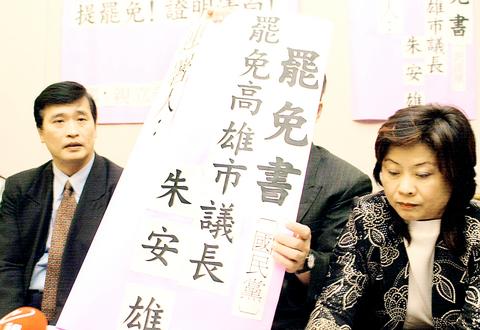 提罷免！證明
罷免書
國民黨
罷免高雄市議長
朱安雄
人：
免書
雄市議長
朱安雄